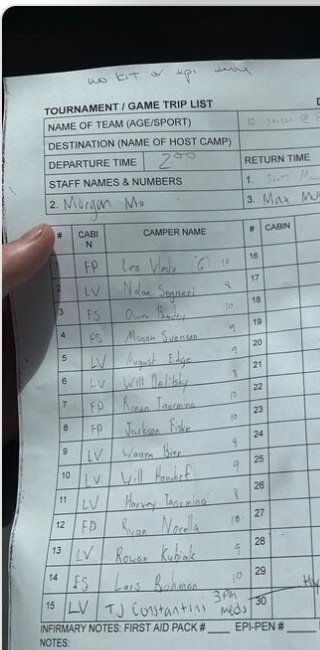 no kit or epi
TOURNAMENT / GAME TRIP LIST
NAME OF TEAM (AGE/SPORT) 10
DESTINATION (NAME OF HOST CAMP)
DEPARTURE TIME 2:00 RETURN TIME
STAFF NAMES & NUMBERS 1.
2. Morgan Mo 3. Max
# CABIN CAMPER NAME # CABIN
FP Leo (G) 10 16
2 LV Nolan Sogneri 8 17
3 FS Owen 10 18
4 FS Svenson 9 19
5 LV August Edge 9 20
6 LV Will 8 21
7 FP Ronan Taormina 10 22
8 FP Jackson Fiske 10 23
9 LV Warren Bier 9 24
10 LV Will 9 25
11 LV Harvey Taormina 8 26
12 FP Ryan Norella 10 27
13 LV Rowan Kubiak 9 28
14 FS Lars Bohman 10 29
15 LV TJ Constantini 3pm meds 30
INFIRMARY NOTES: FIRST AID PACK # ____ EPI-PEN # ____
NOTES: